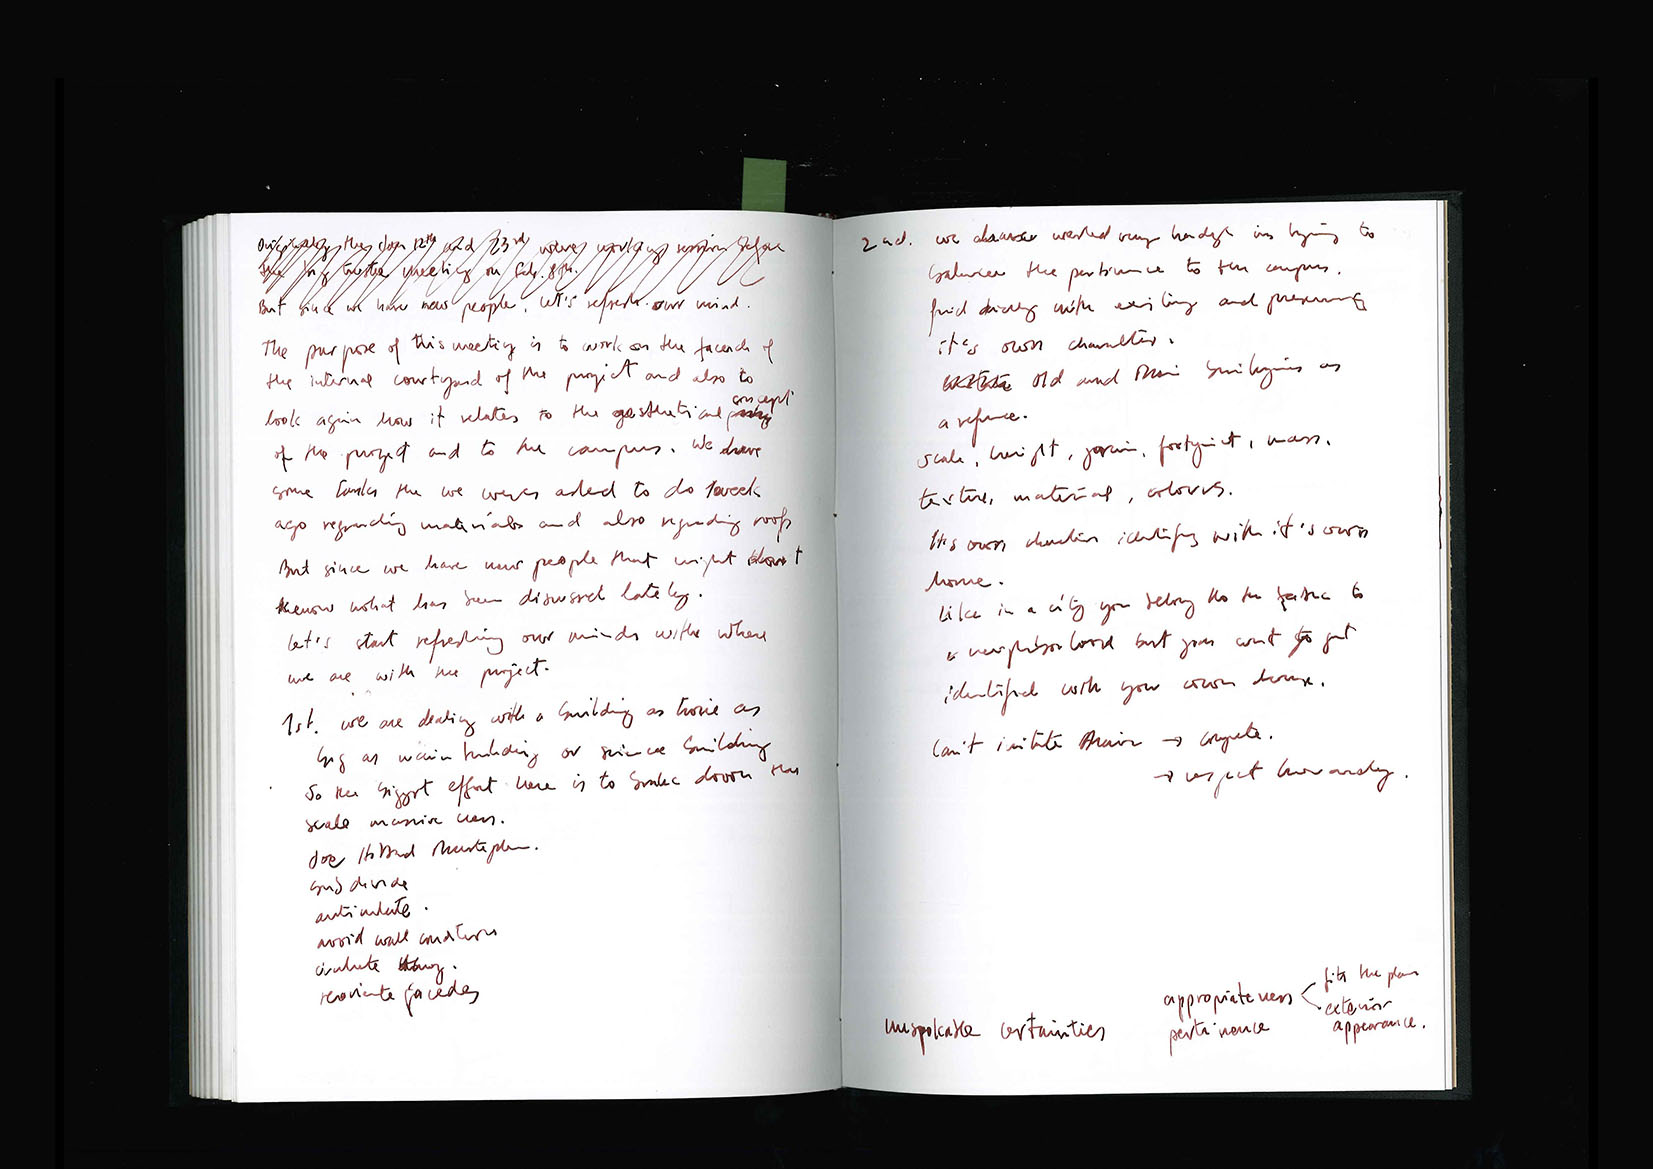 the 12th and 23rd working session before
the big trustee meeting on Feb. 8th.
But since we have new people, let's refresh our mind.
The purpose of this meeting is to work on the facade of
the internal courtyard of the project and also to
look again how it relates to the aesthetical concept
of the project and to the campus. We have
some tasks the we were asked to do 1 week
ago regarding materials and also regarding roofs
But since we have new people that might don't
know what has been discussed lately.
Let's start refreshing our minds with where
we are with the project.
1st. we are dealing with a building as twice as
big as main building or science building
So the biggest effort here is to break down this
scale massive ness.
Joe Masterplan.
subdivide
articulate.
avoid wall conditions
facades
2nd. we worked very hard in trying to
balance the pertinence to the campus.
with existing and preserving
it's own character.
Old and Main buildings as
a refence.
scale, height, grain, footprint, mass.
texture, material, colours.
It's own character identify with it's own
home.
Like in a city you belong to the to
a neighborhood but you want to get
identified with your own house.
Can't imitate Main → compete.
→ respect hierarchy.
unspeakable certainties
appropriateness
pertinence
fits the plan
exterior
appearance.